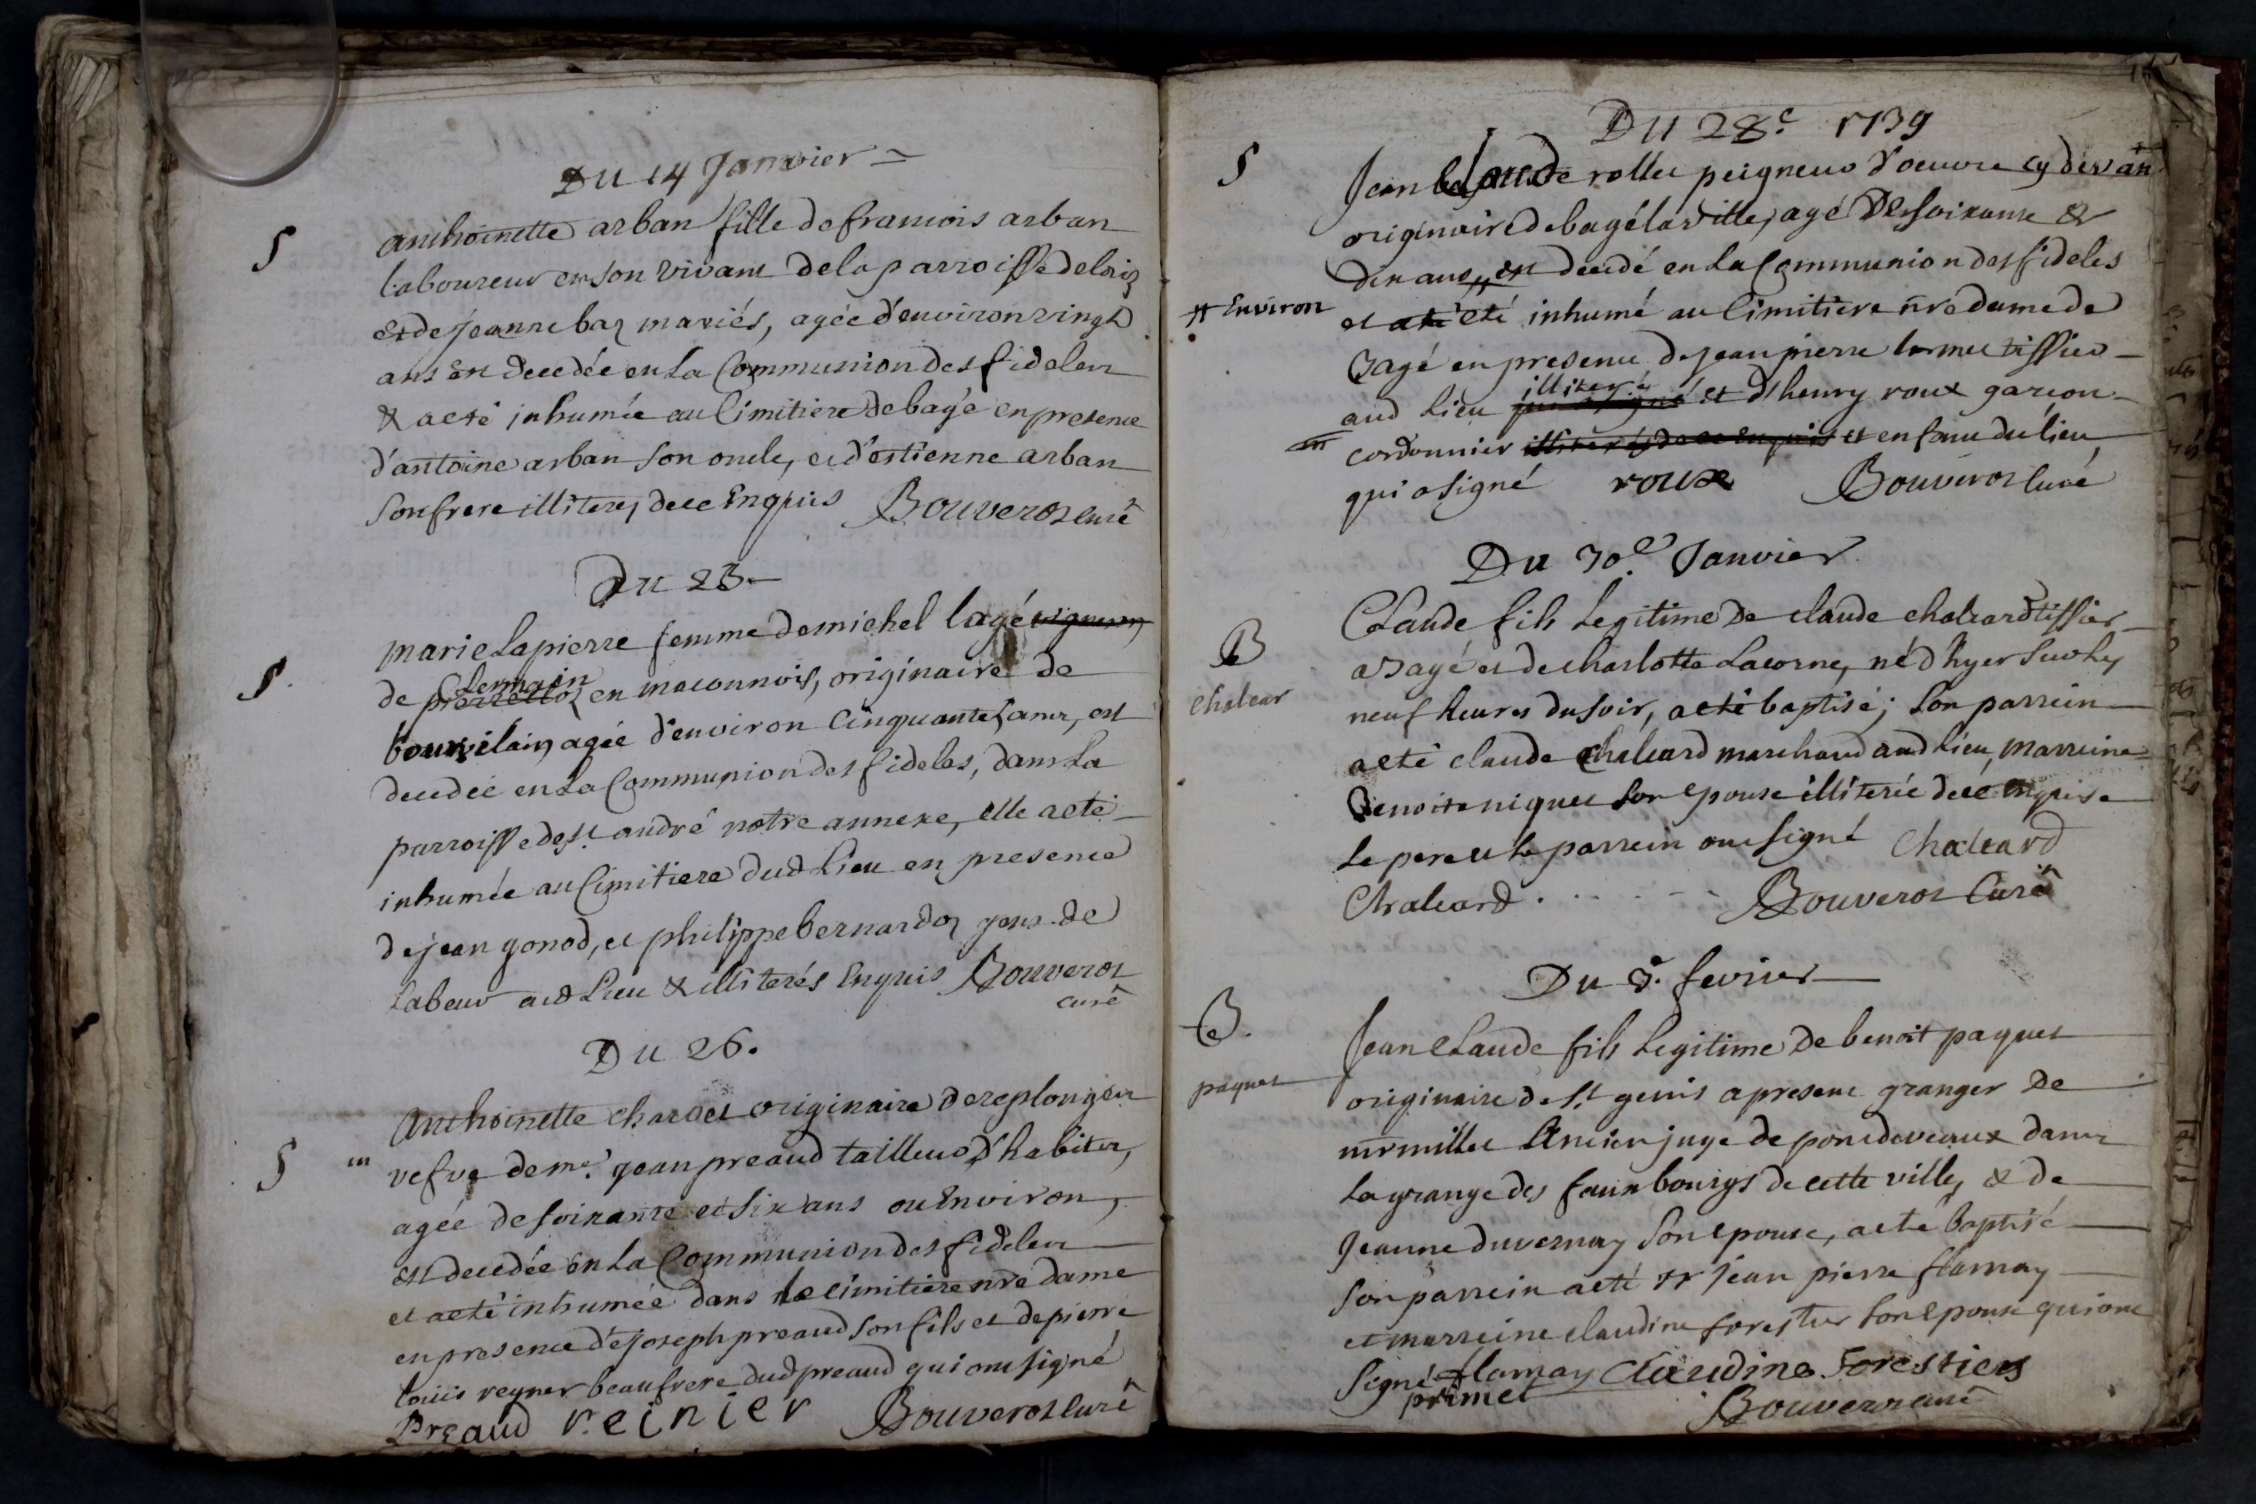 Du 14 Janvier
S
anthoinette arban fille de francois arban
laboureur en son vivant de la parroisse de laiz
et de jeanne baz mariés, agée d'environ vingt
ans est decedée en la Communion des fideles
& a eté inhumée au Cimitiere de bagé en presence
d'antoine arban son oncle, et d'estienne arban
son frere illiterez de ce Enquis Bouverot curé
Du 23
S
marie Lapierre femme de michel lagé vigneron
Clermain
de en maconnois, originaire de
bourvilain agée d'environ Cinquante ans, est
decedée en La Communion des fideles, dans La
parroisse de St andré notre annexe, elle a eté
inhumée au Cimitiere dud Lieu en presence
de jean gonod, et philippe bernardoz gens de
Labeur aud Lieu & illiterés Enquis Bouverot
curé
Du 26.
S
anthoinette chardet originaire de replonges
vefve de me. jean preaud tailleur d'habits,
agée de soixante et six ans ou Environ,
est decedée en La Communion des fideles
et a eté inhumée dans le cimitiere nre dame
en presence de joseph preaud son fils et de pierre
louis reyner beaufrere dud preaud qui ont signé
Preaud reinier Bouverot curé
Du 28e 1739
S
Jean Claude rollet peigneur d'oeuvre cy devan
originaire de bagé la ville, agé de soixante &
dix ans, est decedé en La Communion des fideles
Environ
et a eté eté inhumé au Cimitiere nre dame de
Bagé en presence de jean pierre tissier
illiteré
aud Lieu et d'henry roux garcon
cordonnier illiterés de ce enquis et enfant du lieu
qui a signé roux Bouverot curé
Du 30e Janvier
B
chaleard
Claude fils Legitime de claude chaleard tissier
a Bagé et de charlotte Lacorne, né d'hyer sur les
neuf heures du soir, a eté baptisé; son parrein
a eté claude chaleard marchand aud Lieu, marreine
Benoite niquet son epouse illiterée de ce enquise
Le pere et Le parrein ont signé chaleard
Chaleard Bouverot Curé
Du 8e fevrier
B
paquet
Jean Claude fils Legitime de benoit paquet
originaire de St genis a present granger de
mr millet Ancien juge de pondeveaux dans
La grange des fauxbourgs de cette ville, & de
Jeanne duvernay son epouse, a eté baptisé
son parrein a eté sr jean pierre flamay
et marreine claudine forestier son epouse qui ont
signé flamay Claudine Forestiers
primet Bouverot curé